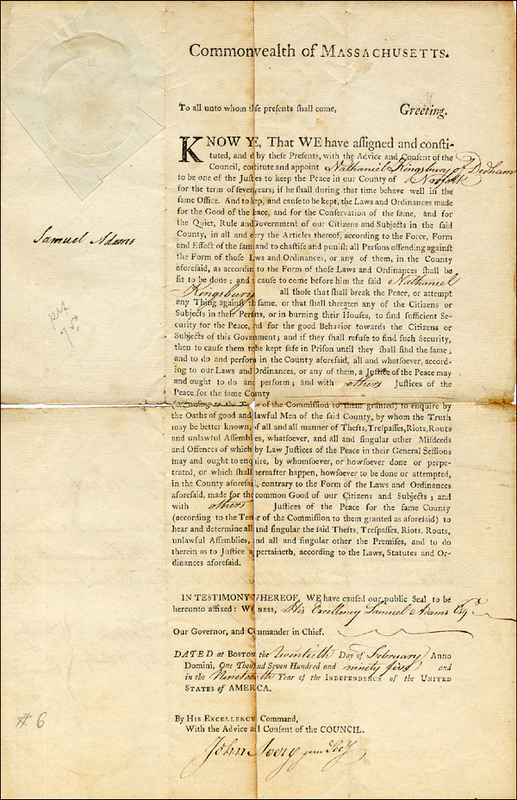 Commonwealth of MASSACHUSETTS.
To all unto whom these presents shall come,
Greeting.
KNOW YE, That WE have assigned and consti-
tuted, and by these Presents, with the Advice and Consent of the
Council, constitute and appoint Nathaniel Kingsbury of Dedham
to be one of the Justices to keep the Peace in our County of Norfolk
for the term of seven years; if he shall during that time behave well in the
same Office. And to keep, and cause to be kept, the Laws and Ordinances made
for the Good of the Peace, and for the Conservation of the same, and for
the Quiet, Rule and Government of our Citizens and Subjects in the said
County, in all and every the Articles thereof, according to the Force, Form
and Effect of the same and to chastise and punish all Persons offending against
the Form of those Laws and Ordinances, or any of them, in the County
aforesaid, as according to the Form of those Laws and Ordinances shall be
fit to be done; and to cause to come before him the said Nathaniel
Kingsbury all those that shall break the Peace, or attempt
any Thing against the same, or that shall threaten any of the Citizens or
Subjects in their Persons, or in burning their Houses, to find sufficient Se-
curity for the Peace, and for the good Behavior towards the Citizens or
Subjects of this Government; and if they shall refuse to find such Security,
then to cause them to be kept safe in Prison until they shall find the same;
and to do and perform in the County aforesaid, all and whatsoever, accord-
ing to our Laws and Ordinances, or any of them, a Justice of the Peace may
and ought to do and perform; and with others Justices of the
Peace for the same County
of the Commission to them granted) to enquire by
the Oaths of good and lawful Men of the said County, by whom the Truth
may be better known, of all and all manner of Thefts, Trespasses, Riots, Routs
and unlawful Assemblies, whatsoever, and all and singular other Misdeeds
and Offences of which by Law Justices of the Peace in their General Sessions
may and ought to enquire, by whomsoever, or howsoever done or perpe-
trated, or which shall hereafter happen, howsoever to be done or attempted,
in the County aforesaid, contrary to the Form of the Laws and Ordinances
aforesaid, made for the common Good of our Citizens and Subjects; and
with others Justices of the Peace for the same County
(according to the Tenor of the Commission to them granted as aforesaid) to
hear and determine all and singular the said Thefts, Trespasses, Riots, Routs,
unlawful Assemblies, and all and singular other the Premises, and to do
therein as to Justice appertaineth, according to the Laws, Statutes and Or-
dinances aforesaid.
Samuel Adams
IN TESTIMONY WHEREOF, WE have caused our public Seal to be
hereunto affixed: WITNESS, His Excellency Samuel Adams Esqr.
Our Governor, and Commander in Chief.
DATED at BOSTON the twentieth Day of February Anno
Domini, One Thousand Seven Hundred and ninety five and
in the Nineteenth Year of the INDEPENDENCE of the UNITED
STATES of AMERICA.
By HIS EXCELLENCY'S Command,
With the Advice and Consent of the COUNCIL.
John Avery junr Secy
# 6